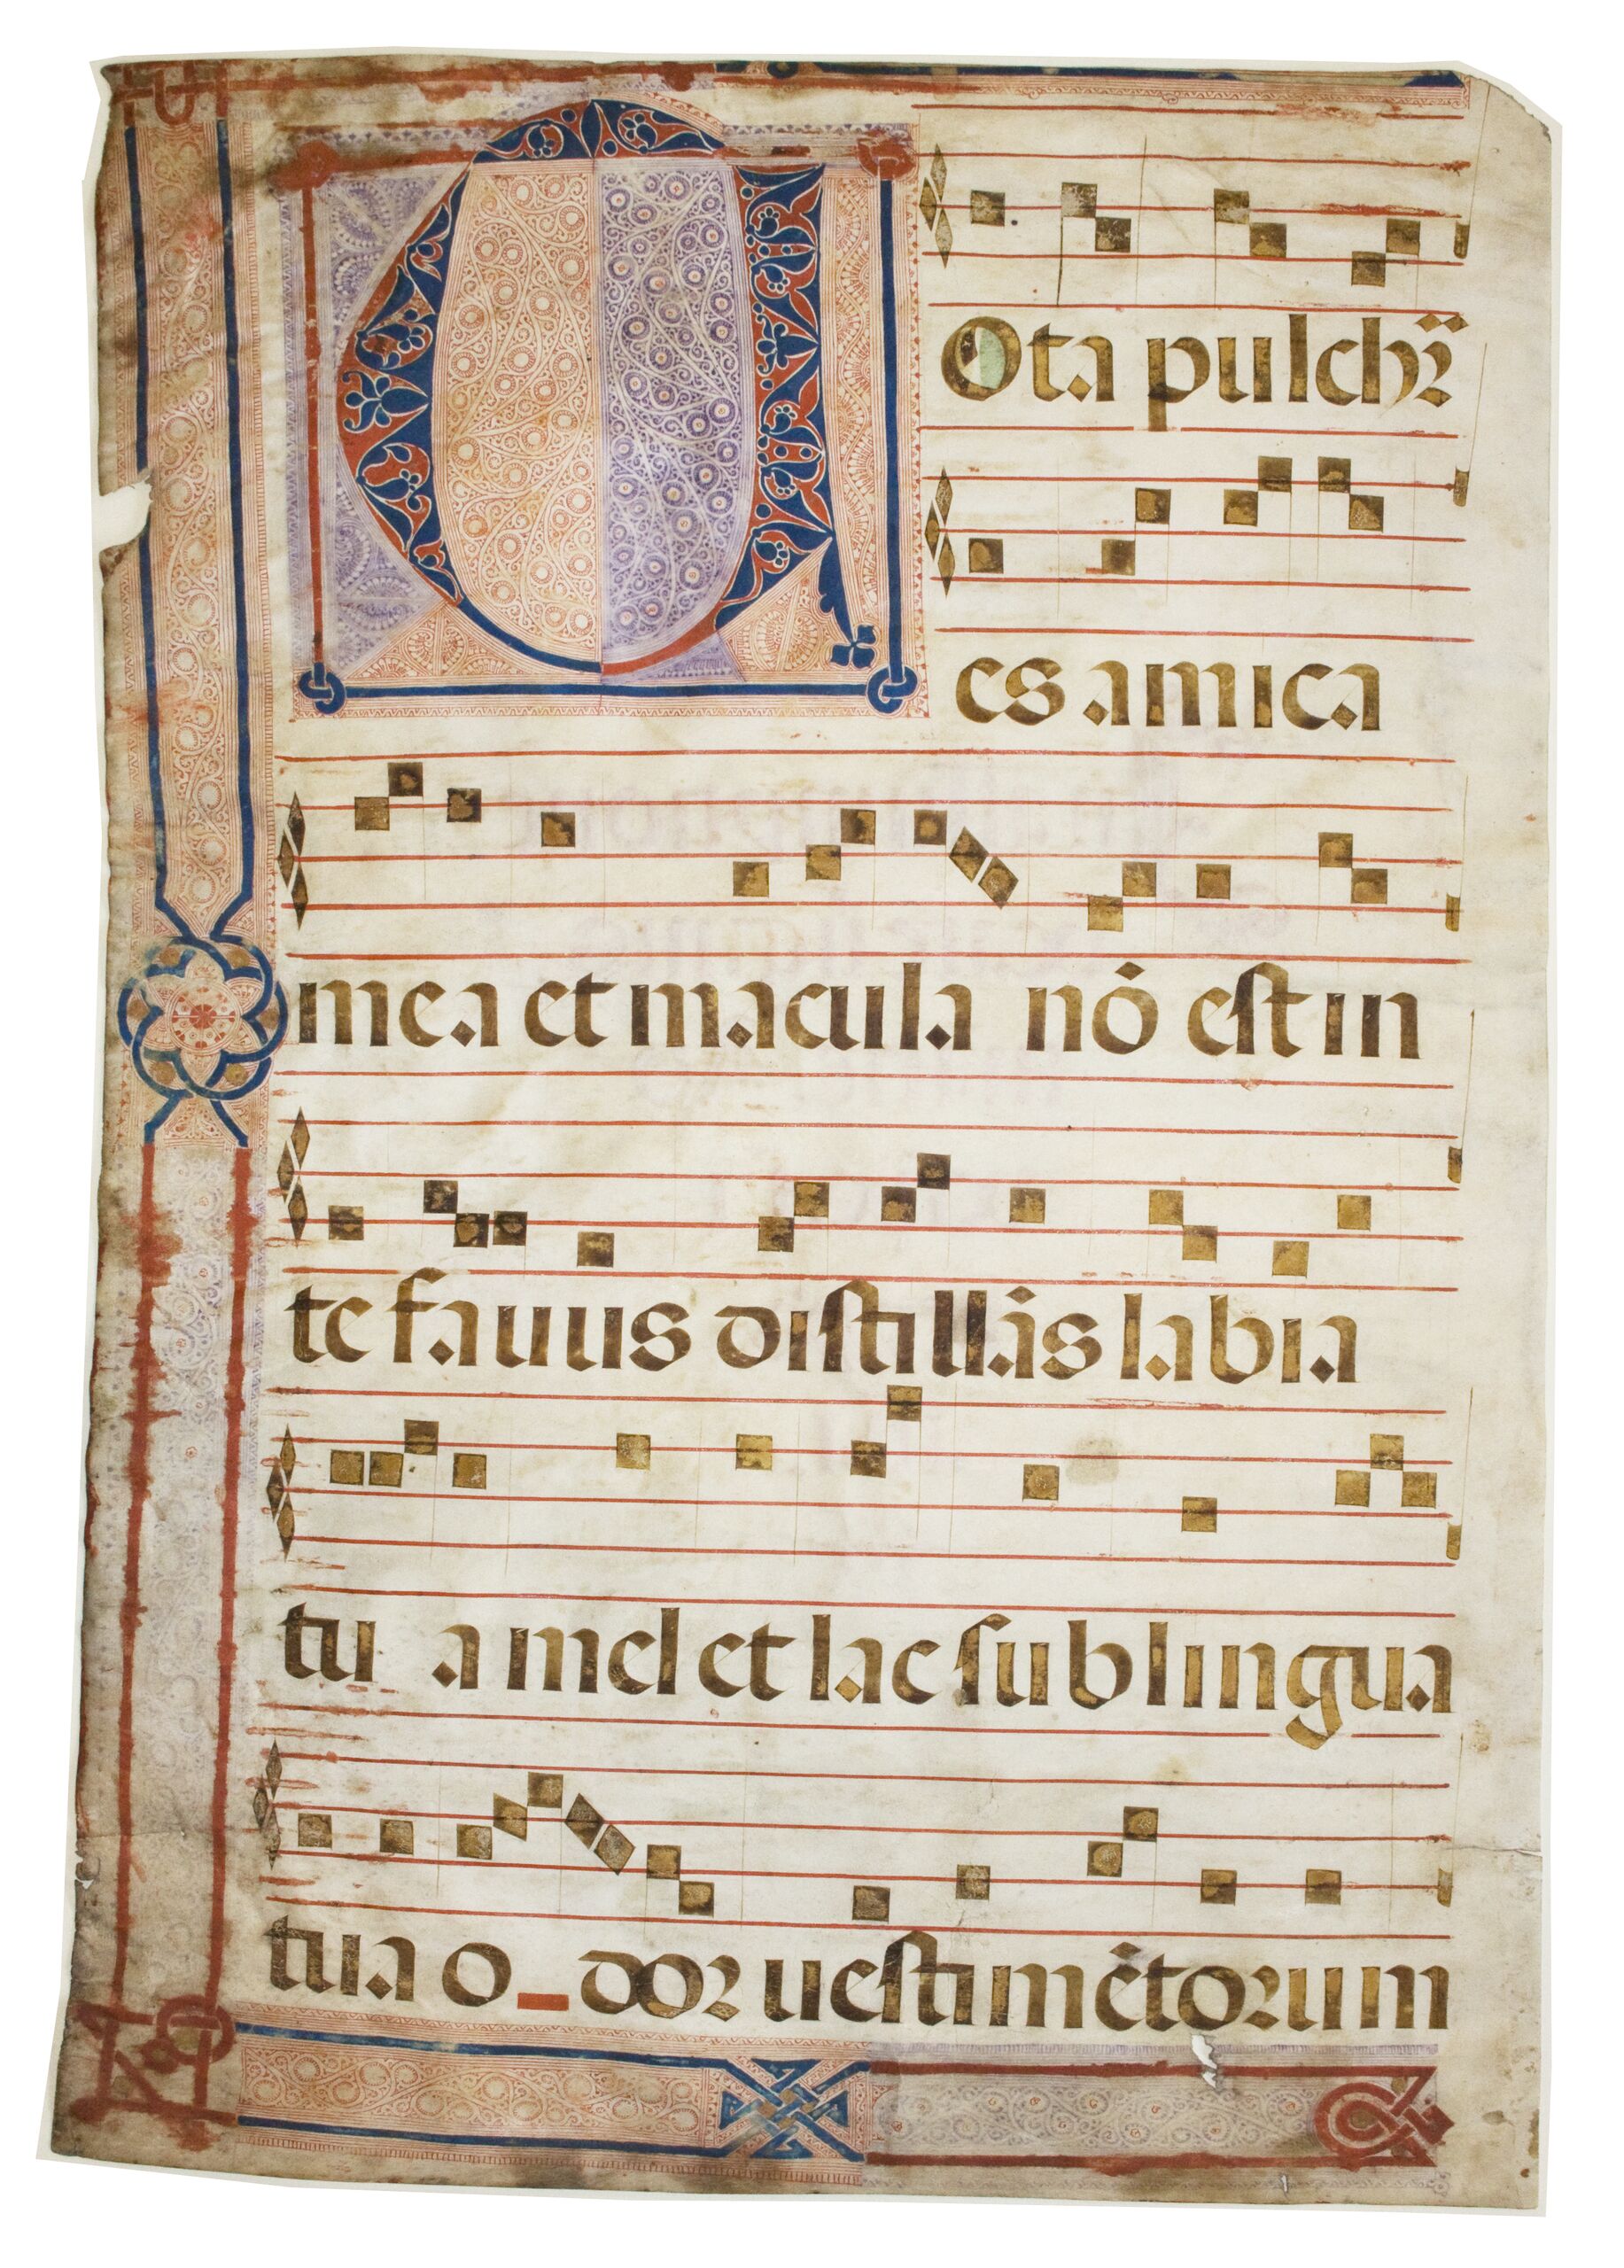 TOta pulchr̃
es amica
mea et macula nõ est in
te fauus distillās labia
tua mel et lac sub lingua
tua o_dor uestimētorum